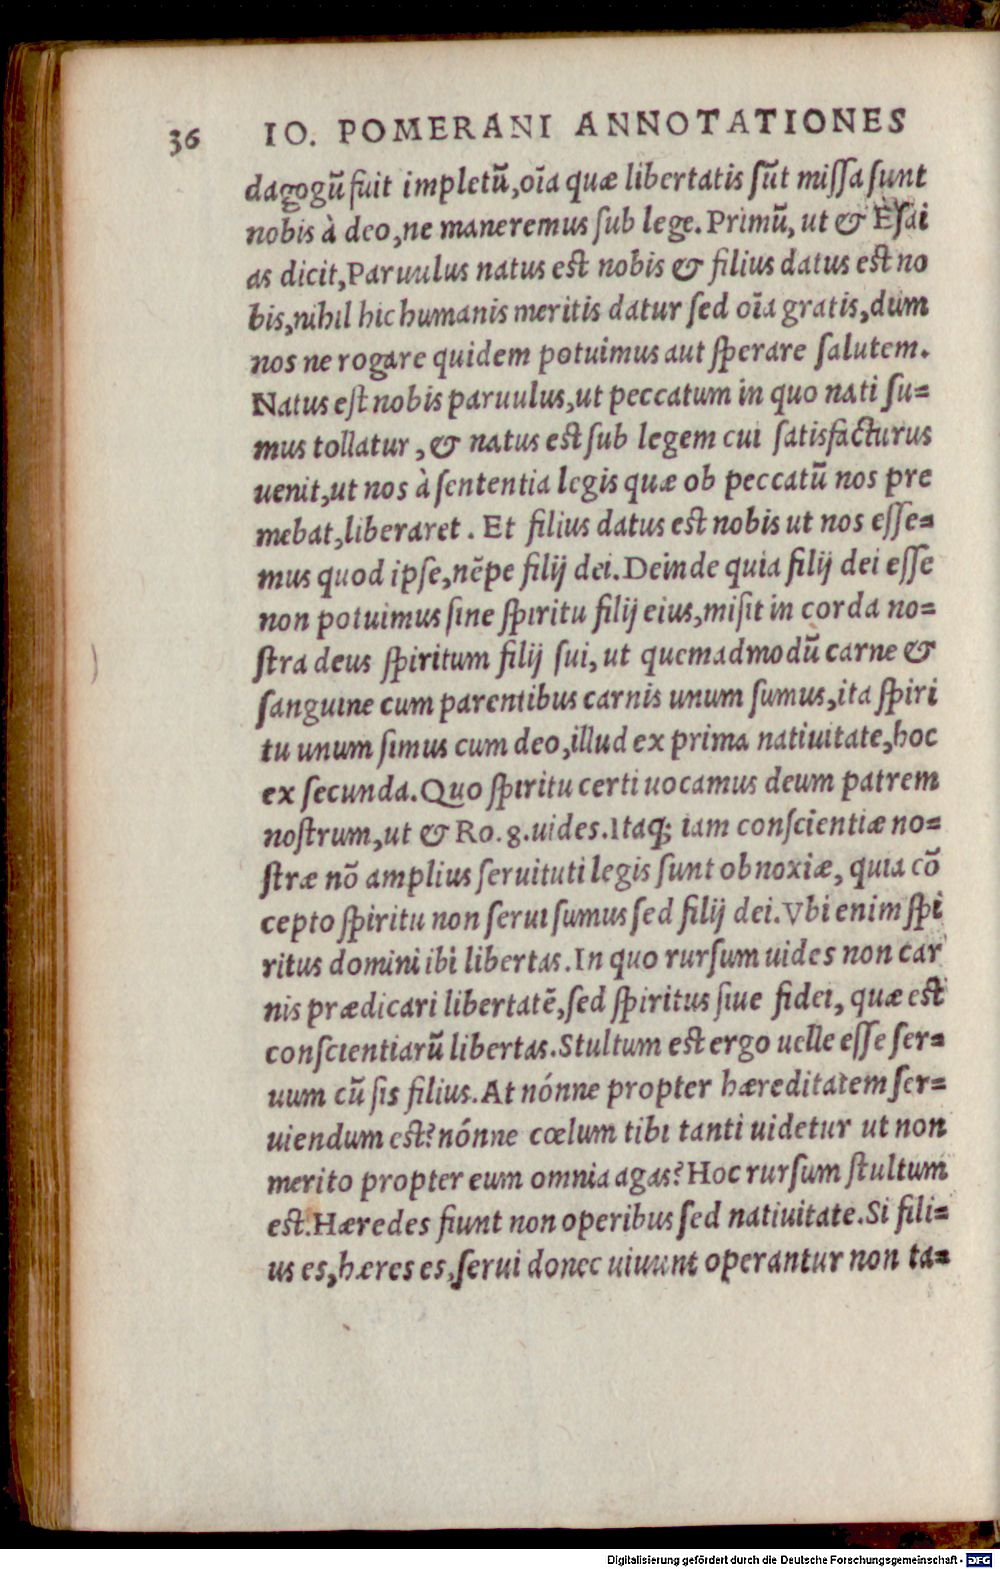 36 IO. POMERANI ANNOTATIONES
dagogũ fuit impletũ, oĩa quæ libertatis sũt missa sunt
nobis à deo, ne maneremus sub lege. Primũ, ut & Esai
as dicit, Paruulus natus est nobis & filius datus est no
bis, nihil hic humanis meritis datur sed oĩa gratis, dum
nos ne rogare quidem potuimus aut sperare salutem.
Natus est nobis paruulus, ut peccatum in quo nati su=
mus tollatur, & natus est sub legem cui satisfacturus
uenit, ut nos à sententia legis quæ ob peccatũ nos pre
mebat, liberaret. Et filius datus est nobis ut nos esse=
mus quod ipse, nẽpe filij dei. Deinde quia filij dei esse
non potuimus sine spiritu filij eius, misit in corda no=
stra deus spiritum filij sui, ut quemadmodũ carne &
sanguine cum parentibus carnis unum sumus, ita spiri
tu unum simus cum deo, illud ex prima natiuitate, hoc
ex secunda. Quo spiritu certi uocamus deum patrem
nostrum, ut & Ro. 8. uides. Itaq; iam conscientiæ no=
stræ nõ amplius seruituti legis sunt obnoxiæ, quia cõ
cepto spiritu non serui sumus sed filij dei. Vbi enim spi
ritus domini ibi libertas. In quo rursum uides non car
nis prædicari libertatẽ, sed spiritus siue fidei, quæ est
conscientiarũ libertas. Stultum est ergo uelle esse ser=
uum cũ sis filius. At nónne propter hæreditatem ser=
uiendum est? nónne cœlum tibi tanti uidetur ut non
merito propter eum omnia agas? Hoc rursum stultum
est. Hæredes fiunt non operibus sed natiuitate. Si fili=
us es, hæres es, serui donec uiuunt operantur non ta=
Digitalisierung gefördert durch die Deutsche Forschungsgemeinschaft - DFG